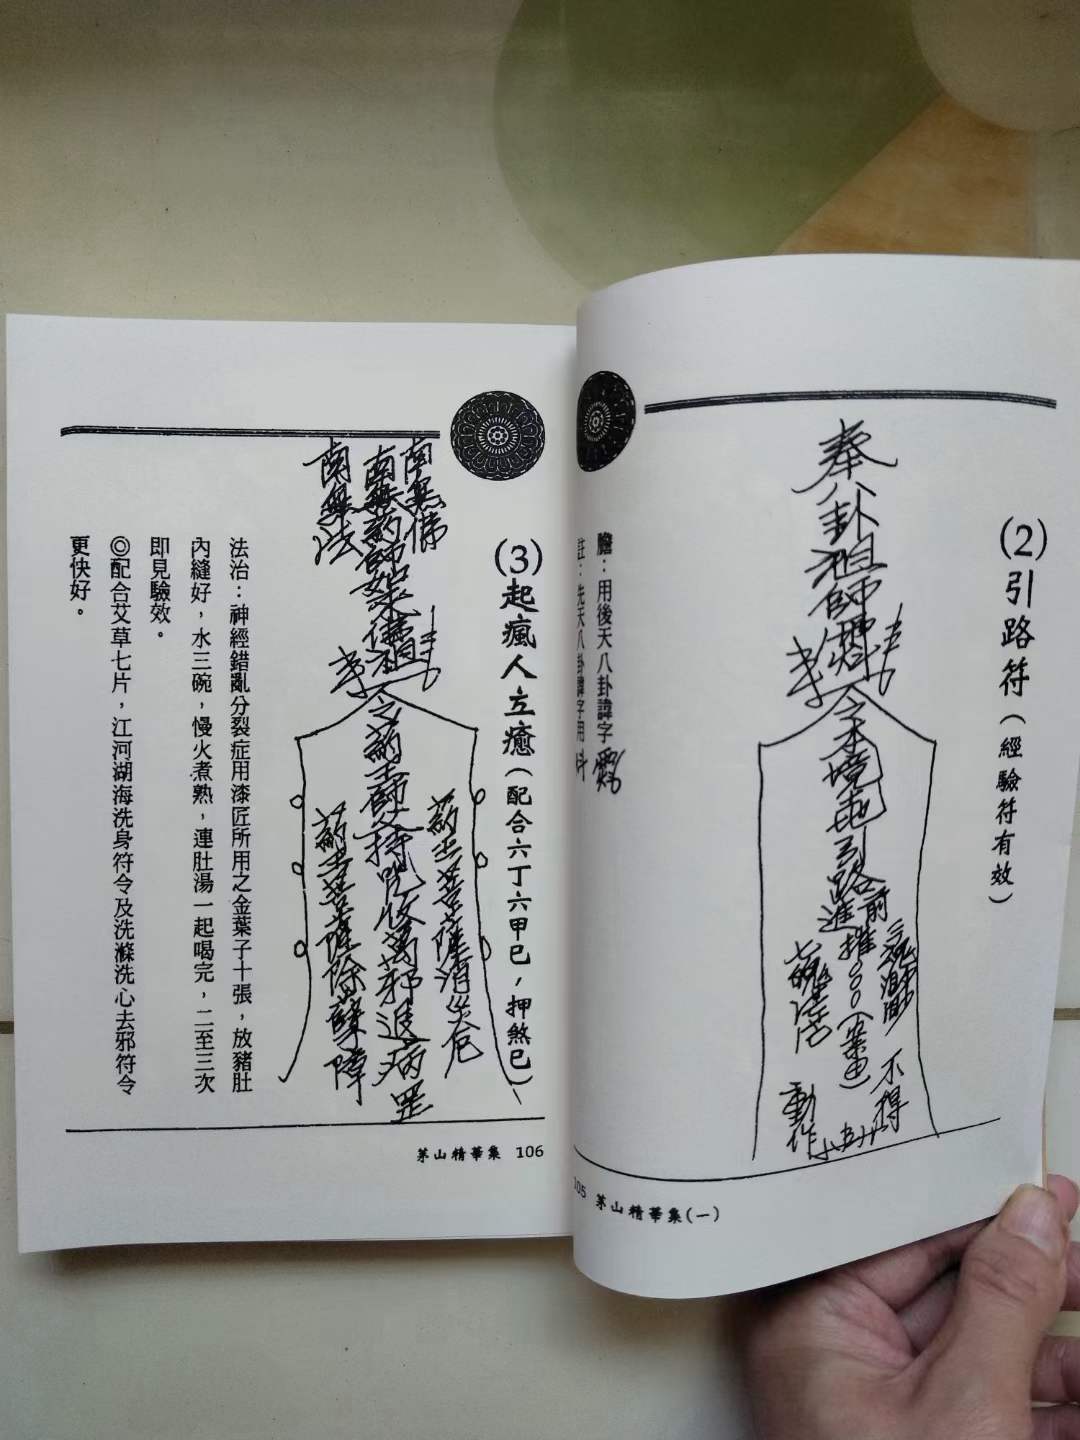 (2)引路符(經驗符有效)
奉八卦祖師
令本境
引路
前
進
不得
動作
膽：用後天八卦諱字
註：先天八卦諱字用
105 茅山精華集(一)
(3)起瘋人立癒(配合六丁六甲巳，押煞巳)
南無佛
南無藥師
南無法
藥王菩薩消災厄
萬邪退病
罡
藥王菩薩除孽障
法治：神經錯亂分裂症用漆匠所用之金葉子十張，放豬肚
內縫好，水三碗，慢火煮熟，連肚湯一起喝完，二至三次
即見驗效。
◎配合艾草七片，江河湖海洗身符令及洗滌洗心去邪符令
更快好。
茅山精華集 106